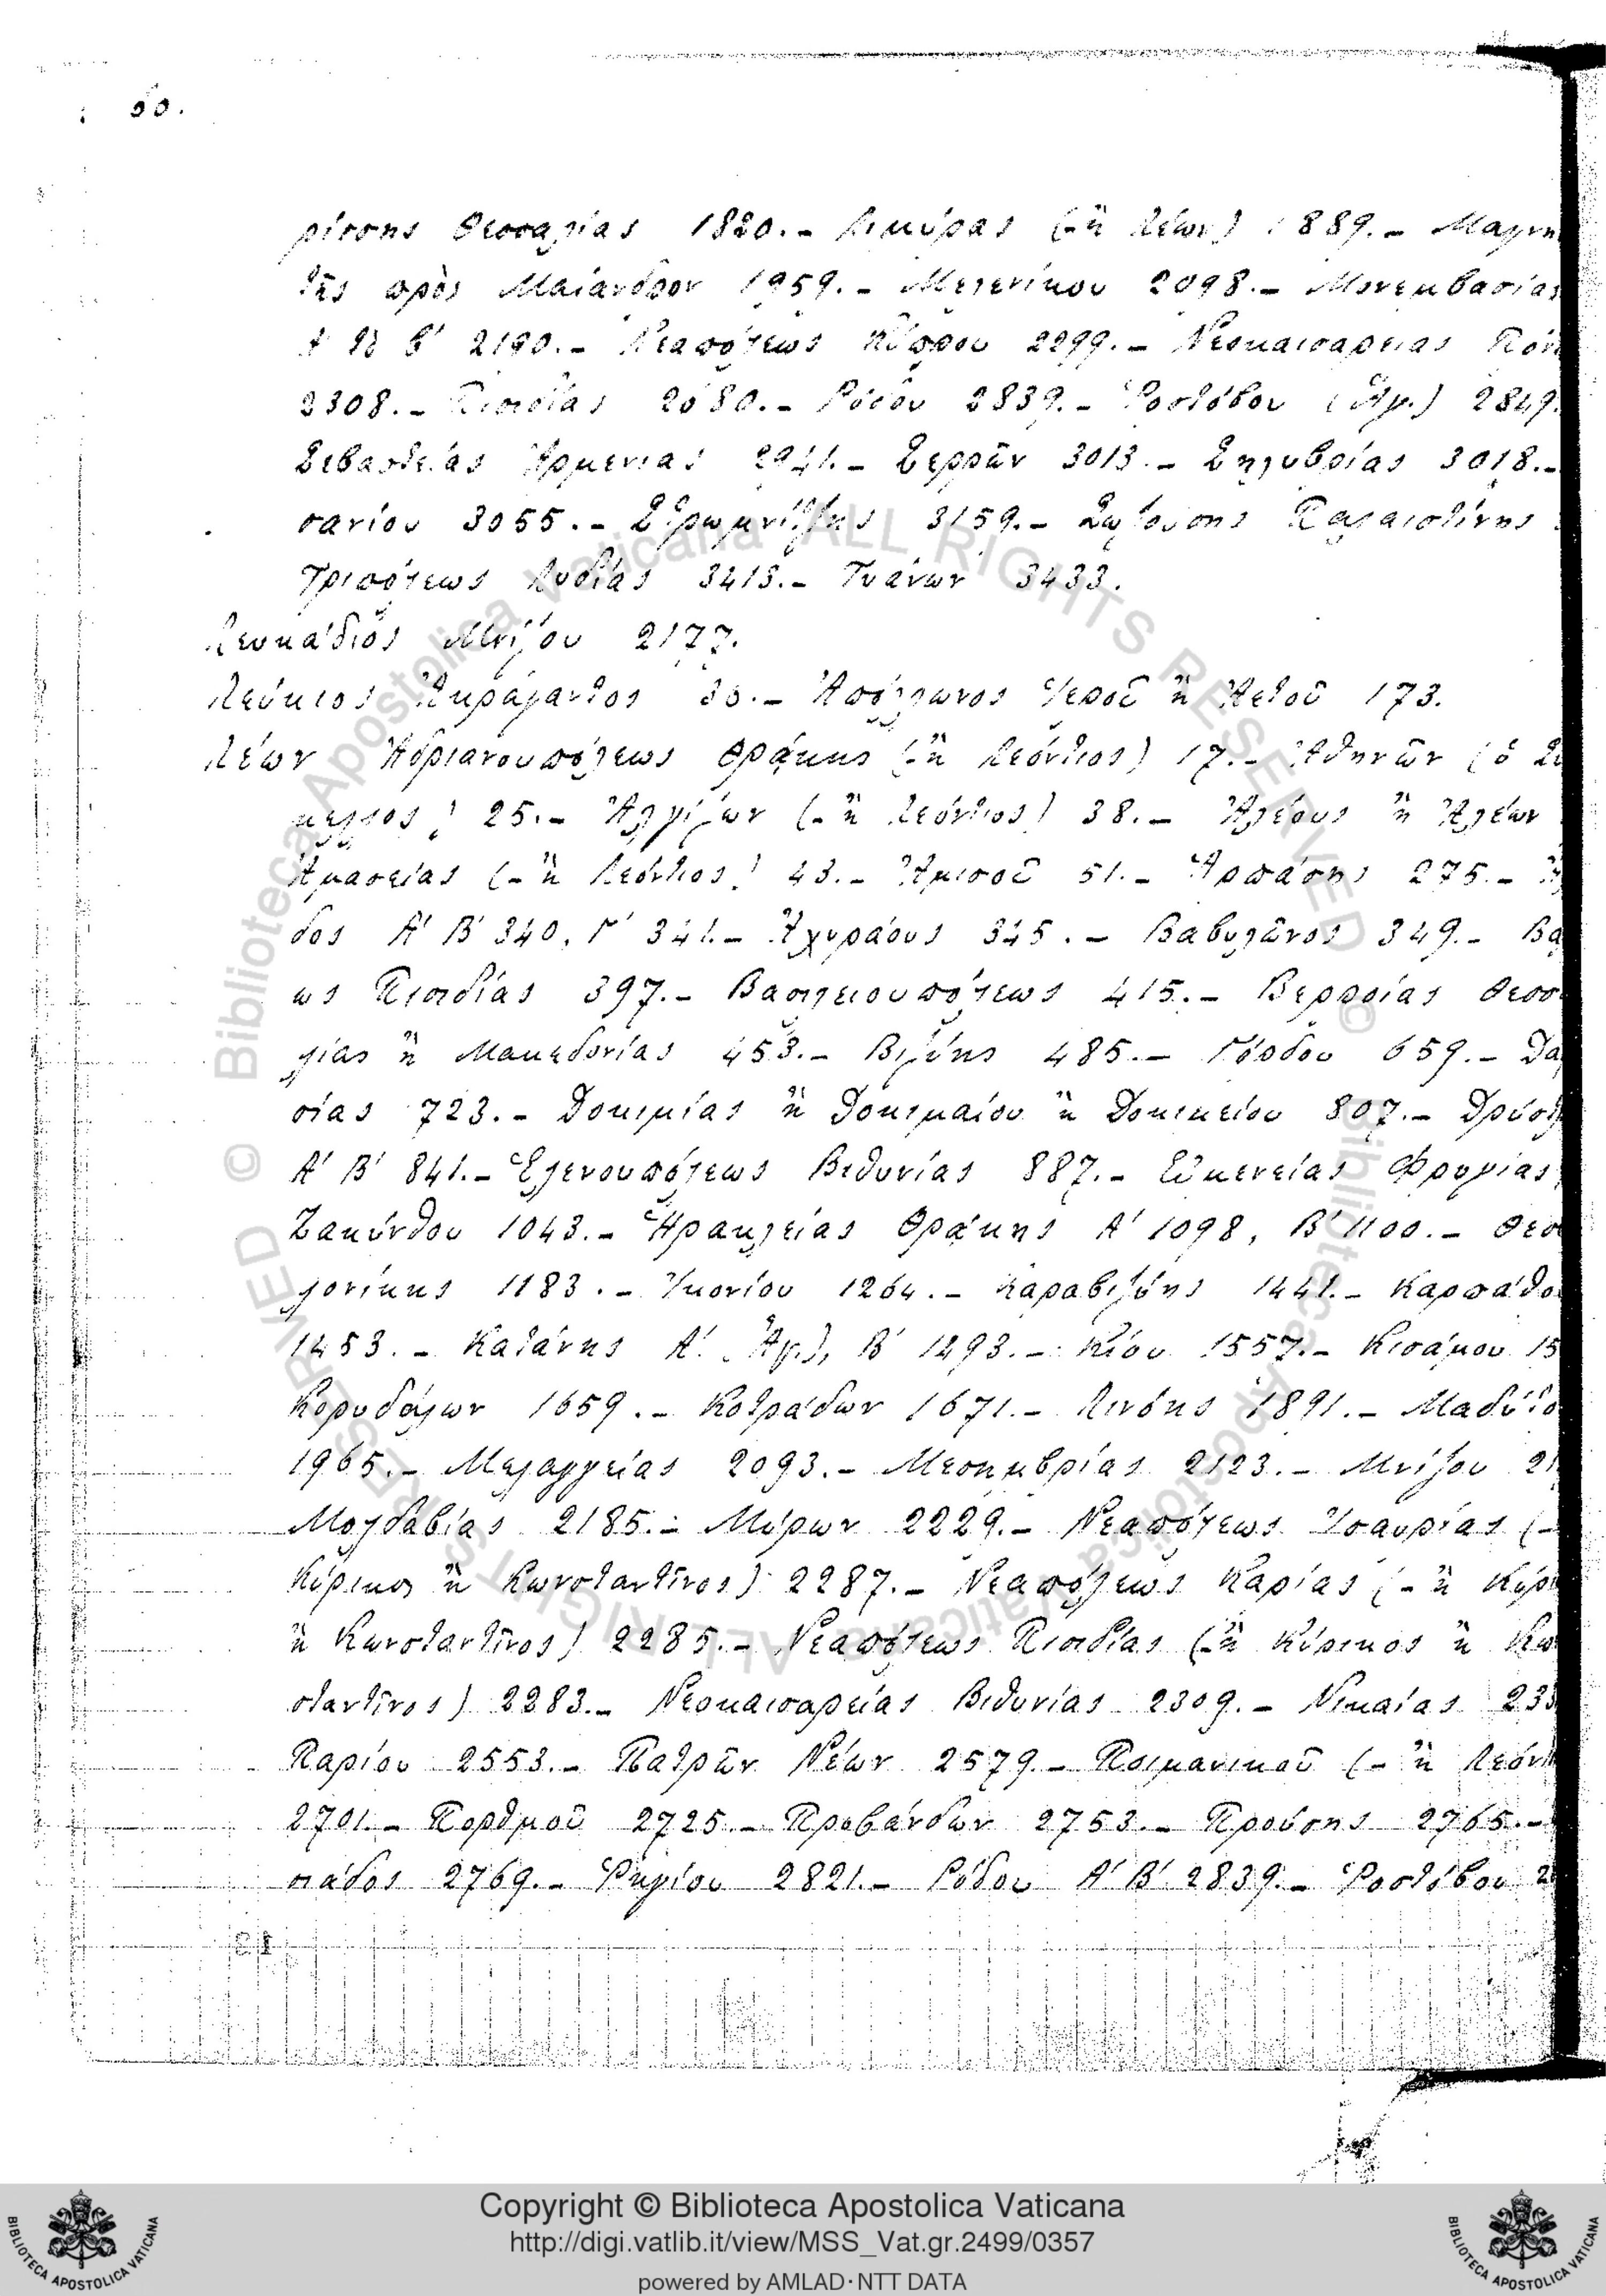 50.
ρίσσης Θεσσαλίας 1820.- Λικύρας (-ἢ Λέων) 1889.- Μαγνη
τῆς πρὸς Μαίανδρον 1959.- Μελενίκου 2098.- Μονεμβασίας
β' 2190.- Νεαπόλεως Κύπρου 2299.- Νεοκαισαρείας Πόν
2308.- Πισιδίας 2680.- Ρόδου 2839.- Ῥοστόβου (Ἅγ.) 2849.
Σεβαστείας Ἀρμενίας 2941.- Σερρῶν 3013.- Σηλυβρίας 3018.-
σανίου 3055.- 3159.- Σωζούσης Παλαιστίνης
Τριπόλεως Λυδίας 3413.- Τυάνων 3433.
Λευκάδιος Μνίζου 2177.
Λεύκιος Ἀκράγαντος 30.- Ἀπόλλωνος Ἱεροῦ ἢ Ἀετοῦ 173.
Λέων Ἀδριανουπόλεως Θρᾴκης (-ἢ Λεόντιος) 17.- Ἀθηνῶν (ὁ Σι
κελλος) 25.- Ἀλγίζων (-ἢ Λεόντιος) 38.- Ἀλέους ἢ Ἀλέων
Ἀμασείας (-ἢ Λεόντιος) 43.- Ἀμισοῦ 51.- Ἁρπάσης 275.-
δος Α' Β' 340, Γ' 341.- Ἀχυράους 345.- Βαβυλῶνος 349.- Βα
ως Πισιδίας 397.- Βασιλειουπόλεως 415.- Βερροίας Θεσσ
λίας ἢ Μακεδονίας 453.- Βιζύης 485.- Γόρδου 659.- Δα
σίας 723.- Δοκιμίας ἢ Δοκιμαίου ἢ Δοκιμείου 807.- Δρύσ
Α' Β' 841.- Ἑλενουπόλεως Βιθυνίας 887.- Εὐμενείας Φρυγίας
Ζακύνθου 1043.- Ἡρακλείας Θρᾴκης Α' 1098, Β' 1100.- Θεσ
λονίκης 1183.- Ἰκονίου 1264.- Καραβιζύης 1441.- Καρπάθο
1453.- Κατάνης Α' (Ἅγ.), Β' 1493.- Κίου 1557.- Κισάμου 15
Κορυδάλων 1659.- Κοτράδων 1671.- Λινόης 1891.- Μαδύτο
1965.- Μελαγγείας 2093.- Μεσημβρίας 2123.- Μνίζου 21
Μολδαβίας 2185.- Μύρων 2229.- Νεαπόλεως Ἰσαυρίας (-
Κύρικος ἢ Κωνσταντῖνος) 2287.- Νεαπόλεως Καρίας (-ἢ Κύρι
ἢ Κωνσταντῖνος) 2285.- Νεαπόλεως Πισιδίας (-ἢ Κύρικος ἢ Κω
σταντῖνος) 2283.- Νεοκαισαρείας Βιθυνίας 2309.- Νικαίας 233
Παρίου 2553.- Πατρῶν Νέων 2579.- Ποιμανικοῦ (-ἢ Λεόντ
2701.- Πορθμοῦ 2725.- Πρεβάνδων 2753.- Προύσης 2765.-
σιάδος 2769.- Ῥηγίου 2821.- Ρόδου Α' Β' 2839.- Ῥοστόβου 2
© Biblioteca Apostolica Vaticana ALL RIGHTS RESERVED
© Biblioteca Apostolica Vaticana ALL RIGHTS RESERVED
Copyright © Biblioteca Apostolica Vaticana
http://digi.vatlib.it/view/MSS_Vat.gr.2499/0357
powered by AMLAD·NTT DATA
BIBLIOTECA APOSTOLICA VATICANA
BIBLIOTECA APOSTOLICA VATICANA